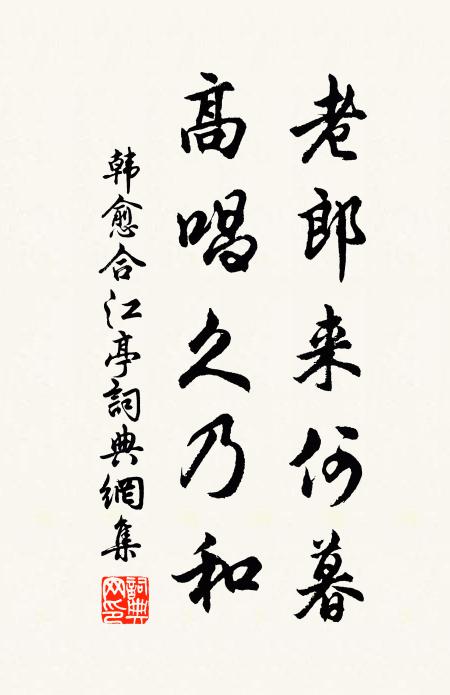 老郎来何暮
高唱久乃和
韩愈合江亭詞典網集
詞典网印